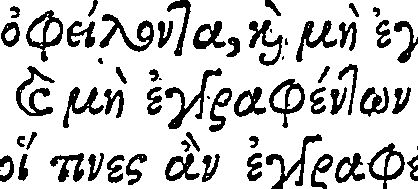 ὀφείλοντα, καὶ μὴ ἐγ
μὴ ἐγγραφέντων
οἵ τινες ἂν ἐγγραφέ